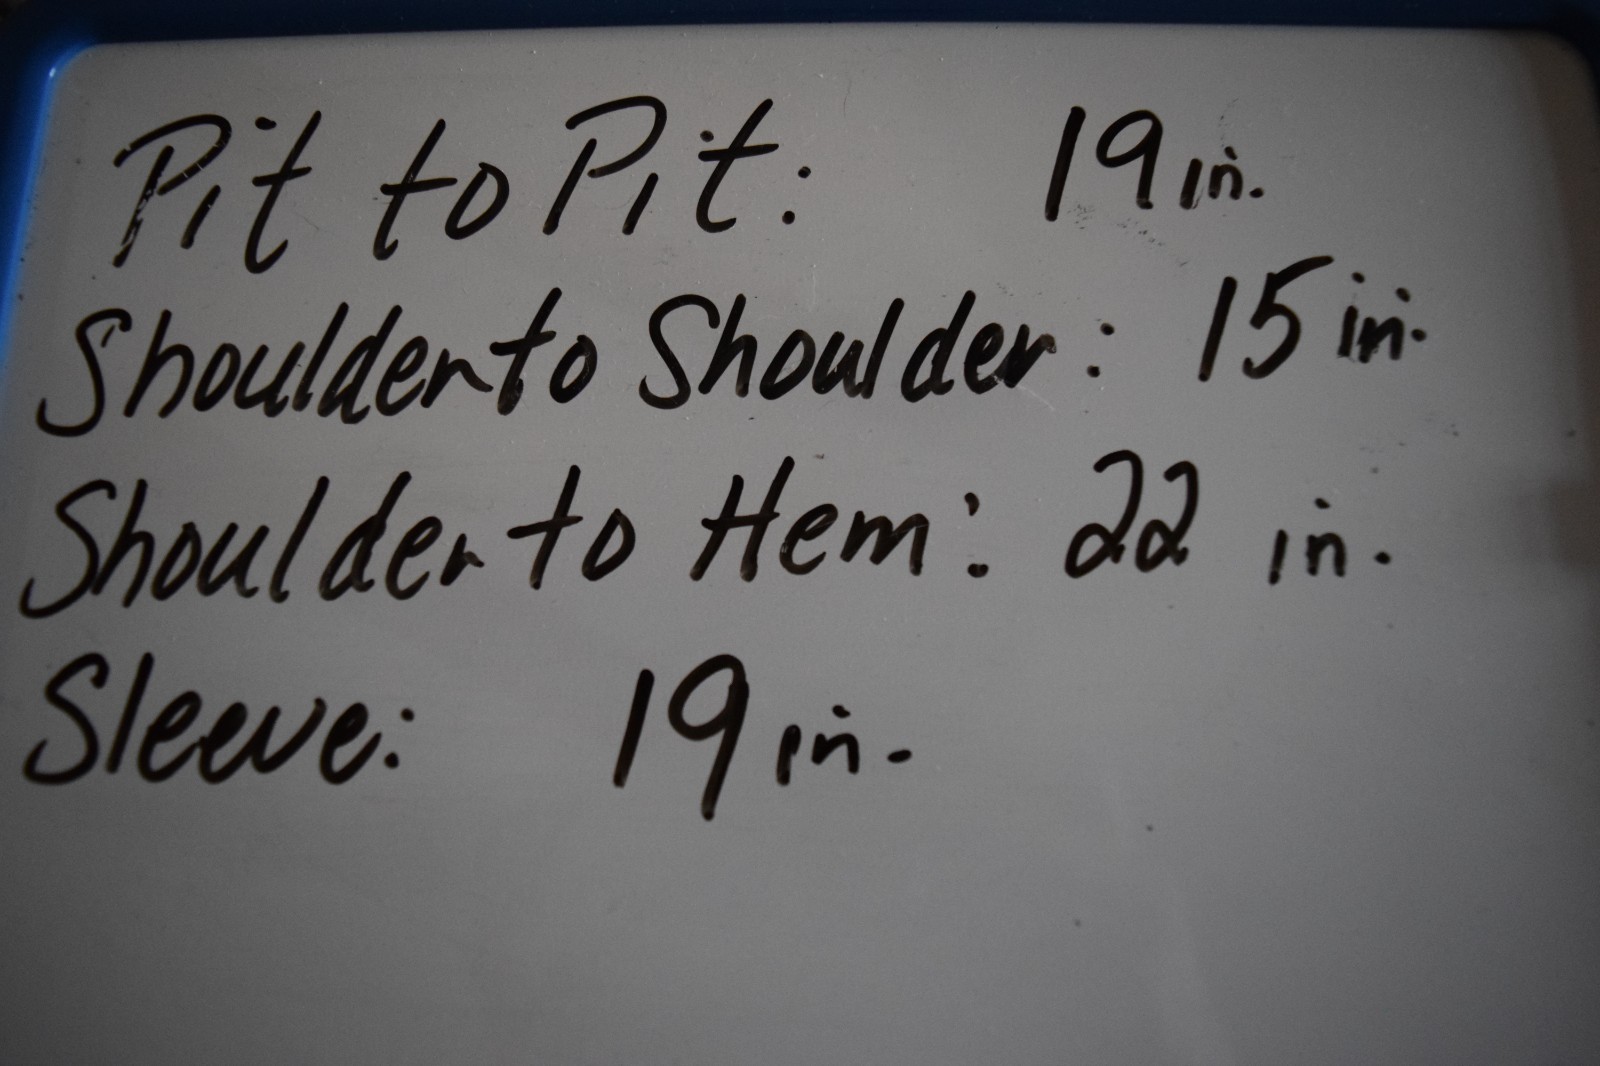 Pit to Pit: 19 in.
Shoulder to Shoulder: 15 in.
Shoulder to Hem: 22 in.
Sleeve: 19 in.